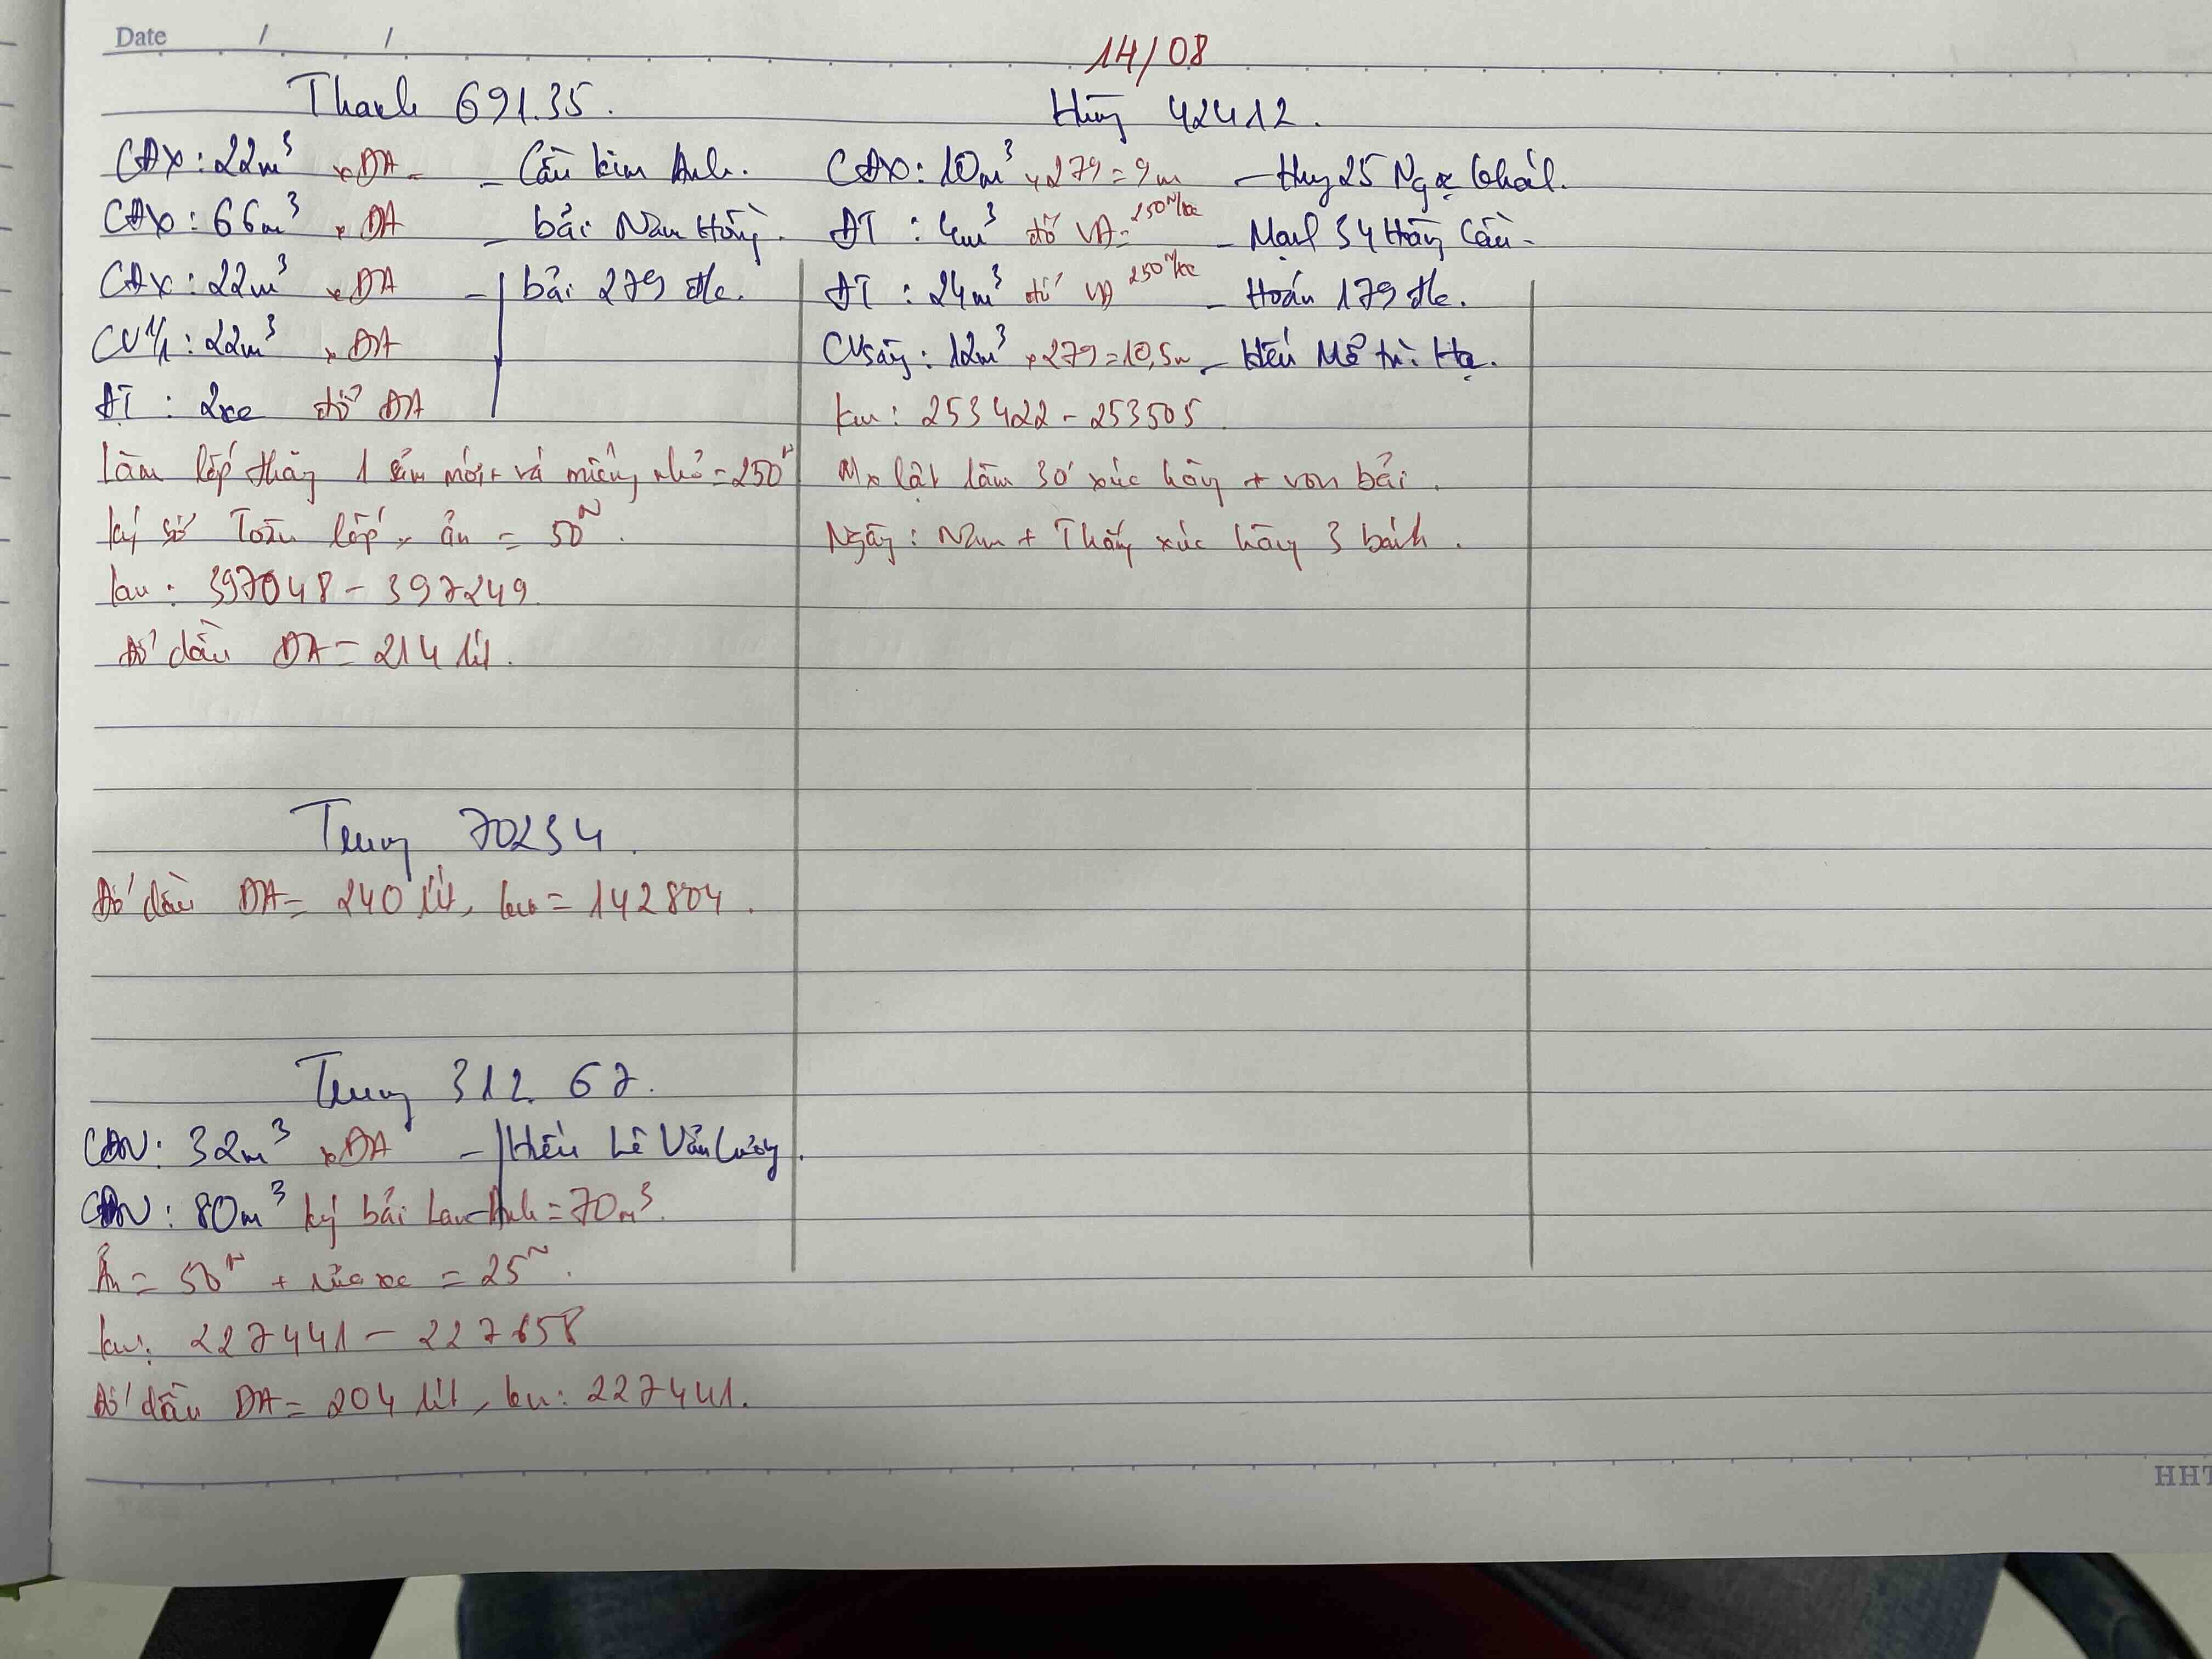 Date / /
14/08
Thanh 691.35.
CĐX: 22m³ x ĐA - - Cầu Kim Anh.
CĐX: 66m³ x ĐA - bãi Nam Hồng.
CĐX: 22m³ x ĐA - bãi 279 đề.
CV 1/1: 22m³ x ĐA
ĐT: 2xe đổ ĐA
Làm lốp tháng 1 săm mới + vá miếng nhỏ = 250ⁿ
ký sổ Toàn lốp, ăn = 50ⁿ.
km: 397048 - 397249
Đổ dầu ĐA = 214 lít.
Trung 70234.
Đổ dầu ĐA = 240 lít, km = 142804.
Trung 312.67.
CĐV: 32m³ x ĐA - Hiếu Lê Văn Lương.
CĐV: 80m³ ký bãi Lan Anh = 70m³.
Ăn = 50ⁿ + rửa xe = 25ⁿ.
km: 227441 - 227658
Đổ dầu ĐA = 204 lít, km: 227441.
Hùng 42412.
CĐX: 10m³ x 279 = 9m - Huy 25 Ngọc Khát.
ĐT: 4m³ đổ VĐ = 250ⁿ/xe - Mạnh 34 Hoàng Cầu.
ĐT: 24m³ đổ VĐ 250ⁿ/xe - Hoán 179 đề.
CVsàng: 12m³ x 279 = 10,5m - Hiếu Mễ trì Hạ.
km: 253422 - 253505.
Mx lật làm 30' xúc hàng + von bãi.
Ngày: Nam + Thắng xúc hàng 3 bánh.
HHT